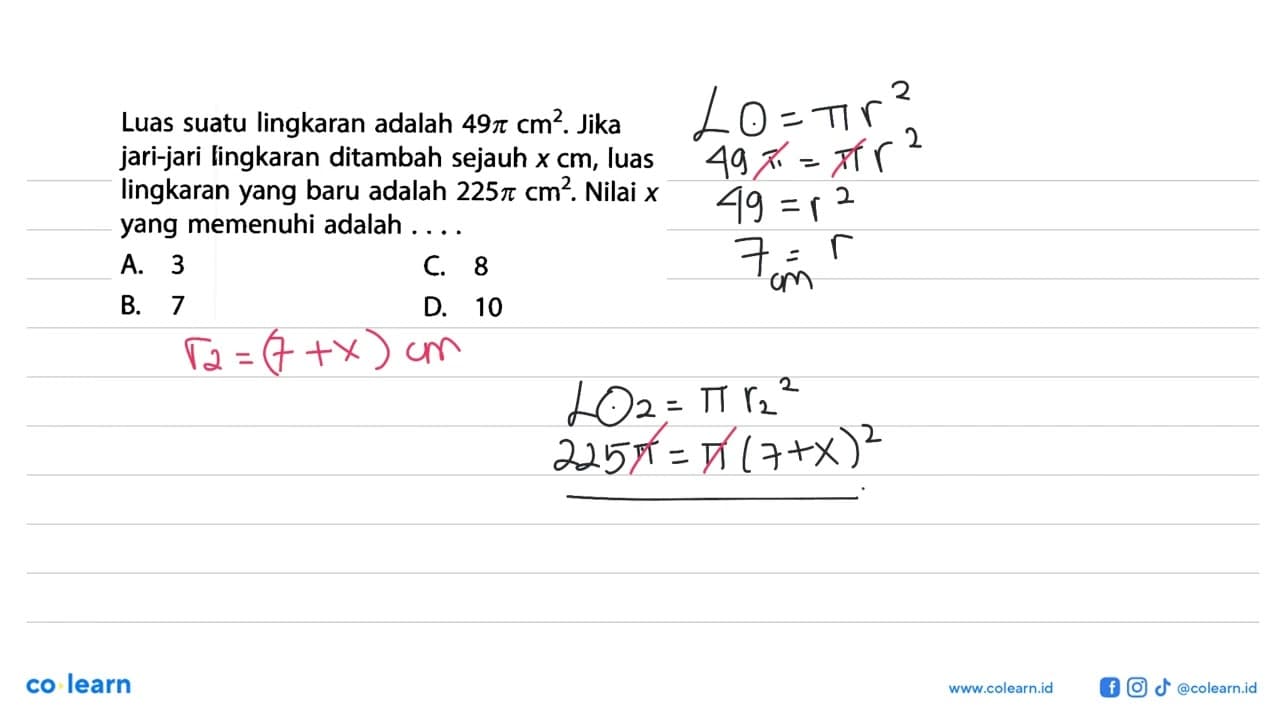 Luas suatu lingkaran adalah 49π cm². Jika
jari-jari lingkaran ditambah sejauh x cm, luas
lingkaran yang baru adalah 225π cm². Nilai x
yang memenuhi adalah . . . .
A. 3 C. 8
B. 7 D. 10
L⊙ = πr²
49π = πr²
49 = r²
7 = r
cm
r₂ = (7+x) cm
L⊙₂ = π r₂²
225π = π(7+x)²
co learn
www.colearn.id @colearn.id